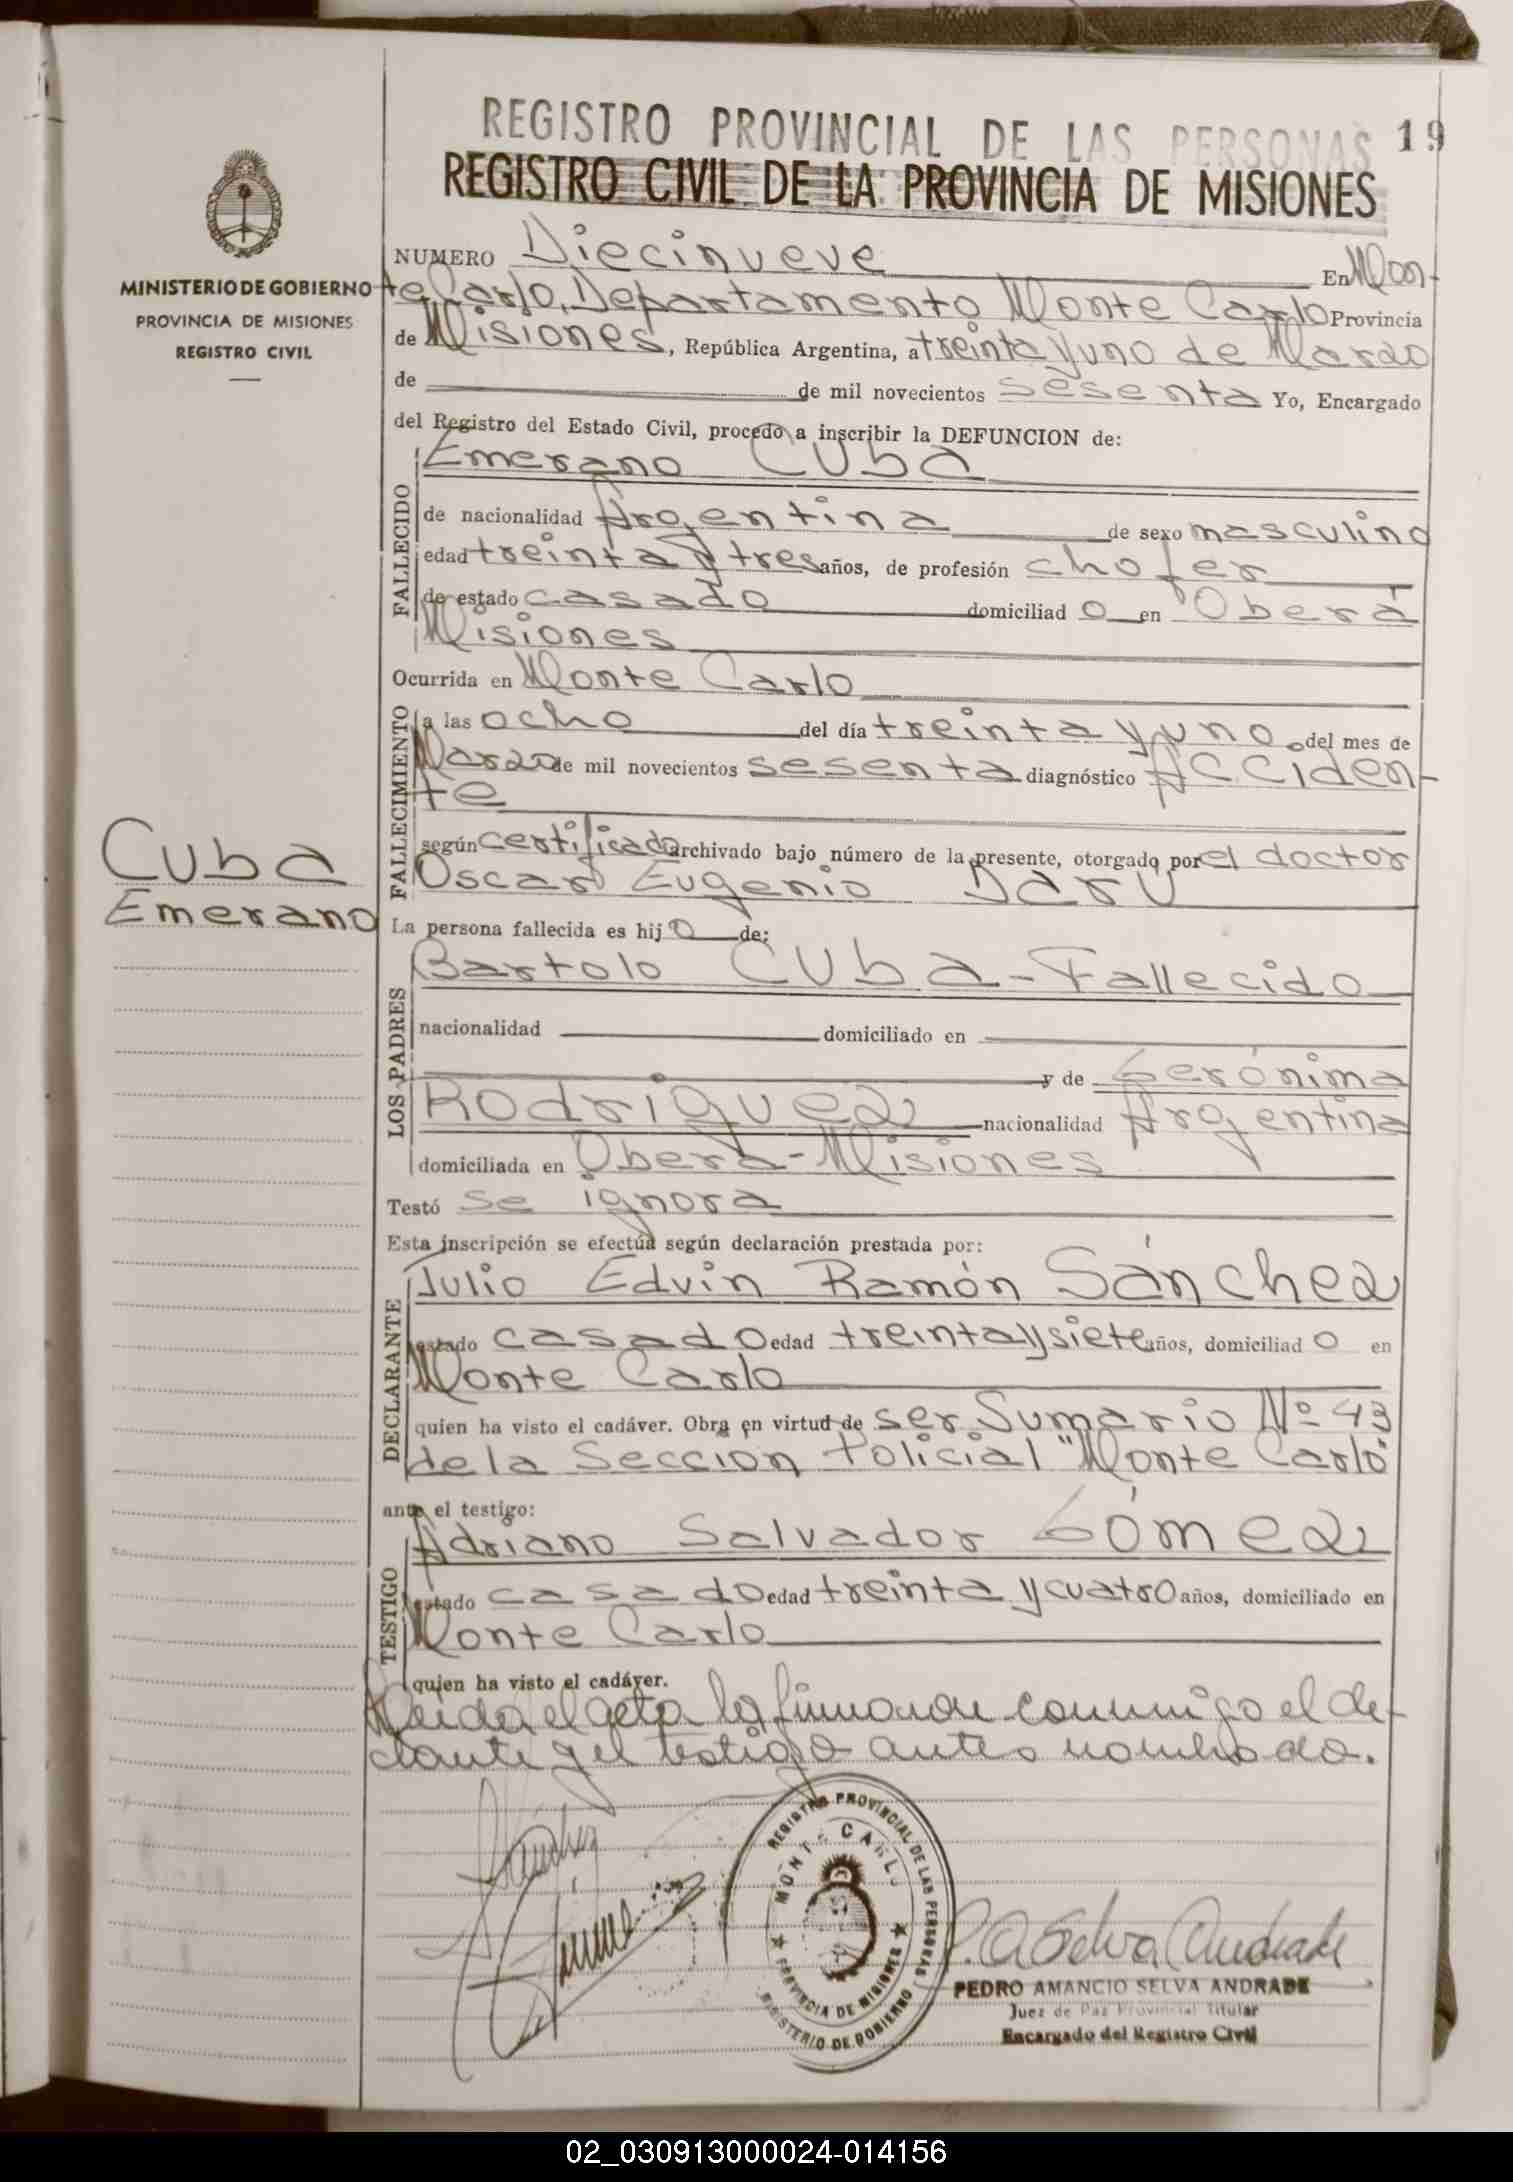 REGISTRO PROVINCIAL DE LAS PERSONAS 19
REGISTRO CIVIL DE LA PROVINCIA DE MISIONES
MINISTERIO DE GOBIERNO
PROVINCIA DE MISIONES
REGISTRO CIVIL
NUMERO Diecinueve En Mon-
te Carlo, Departamento Monte Carlo Provincia
de Misiones, República Argentina, a treinta y uno de Marzo
de de mil novecientos sesenta Yo, Encargado
del Registro del Estado Civil, procedo a inscribir la DEFUNCION de:
FALLECIDO
Emerano Cuba
de nacionalidad Argentina de sexo masculino
edad treinta y tres años, de profesión chofer
de estado casado domiciliado en Oberá
Misiones
Ocurrida en Monte Carlo
FALLECIMIENTO
a las ocho del día treinta y uno del mes de
Marzo de mil novecientos sesenta diagnóstico Acciden-
te
según certificado archivado bajo número de la presente, otorgado por el doctor
Oscar Eugenio Daru
Cuba
Emerano
La persona fallecida es hijo de:
LOS PADRES
Bartolo Cuba - Fallecido
nacionalidad domiciliado en
y de Gerónima
Rodriguez nacionalidad Argentina
domiciliada en Oberá - Misiones
Testó se ignora
Esta inscripción se efectúa según declaración prestada por:
DECLARANTE
Julio Edvin Ramón Sánchez
estado casado edad treinta y siete años, domiciliado en
Monte Carlo
quien ha visto el cadáver. Obra en virtud de ser Sumario Nº 43
de la Seccion Policial "Monte Carlo"
ante el testigo:
TESTIGO
Adriano Salvador Gómez
estado casado edad treinta y cuatro años, domiciliado en
Monte Carlo
quien ha visto el cadáver.
Leida el acta la firmaron conmigo el de-
clante y el testigo antes nombrado.
Sánchez
REGISTRO PROVINCIAL DE LAS PERSONAS
MONTE CARLO
PROVINCIA DE MISIONES
MINISTERIO DE GOBIERNO
P. A. Selva Andrade
PEDRO AMANCIO SELVA ANDRADE
Juez de Paz Provincial Titular
Encargado del Registro Civil
02_030913000024-014156